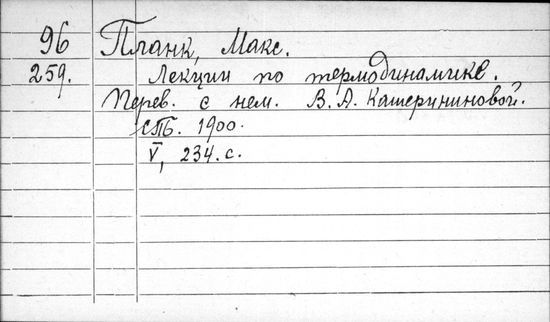 96 Планк, Макс.
259. Лекции по термодинамике.
Перев. с нем. В. А. Кашерининовой.
СПБ. 1900.
V, 234. с.